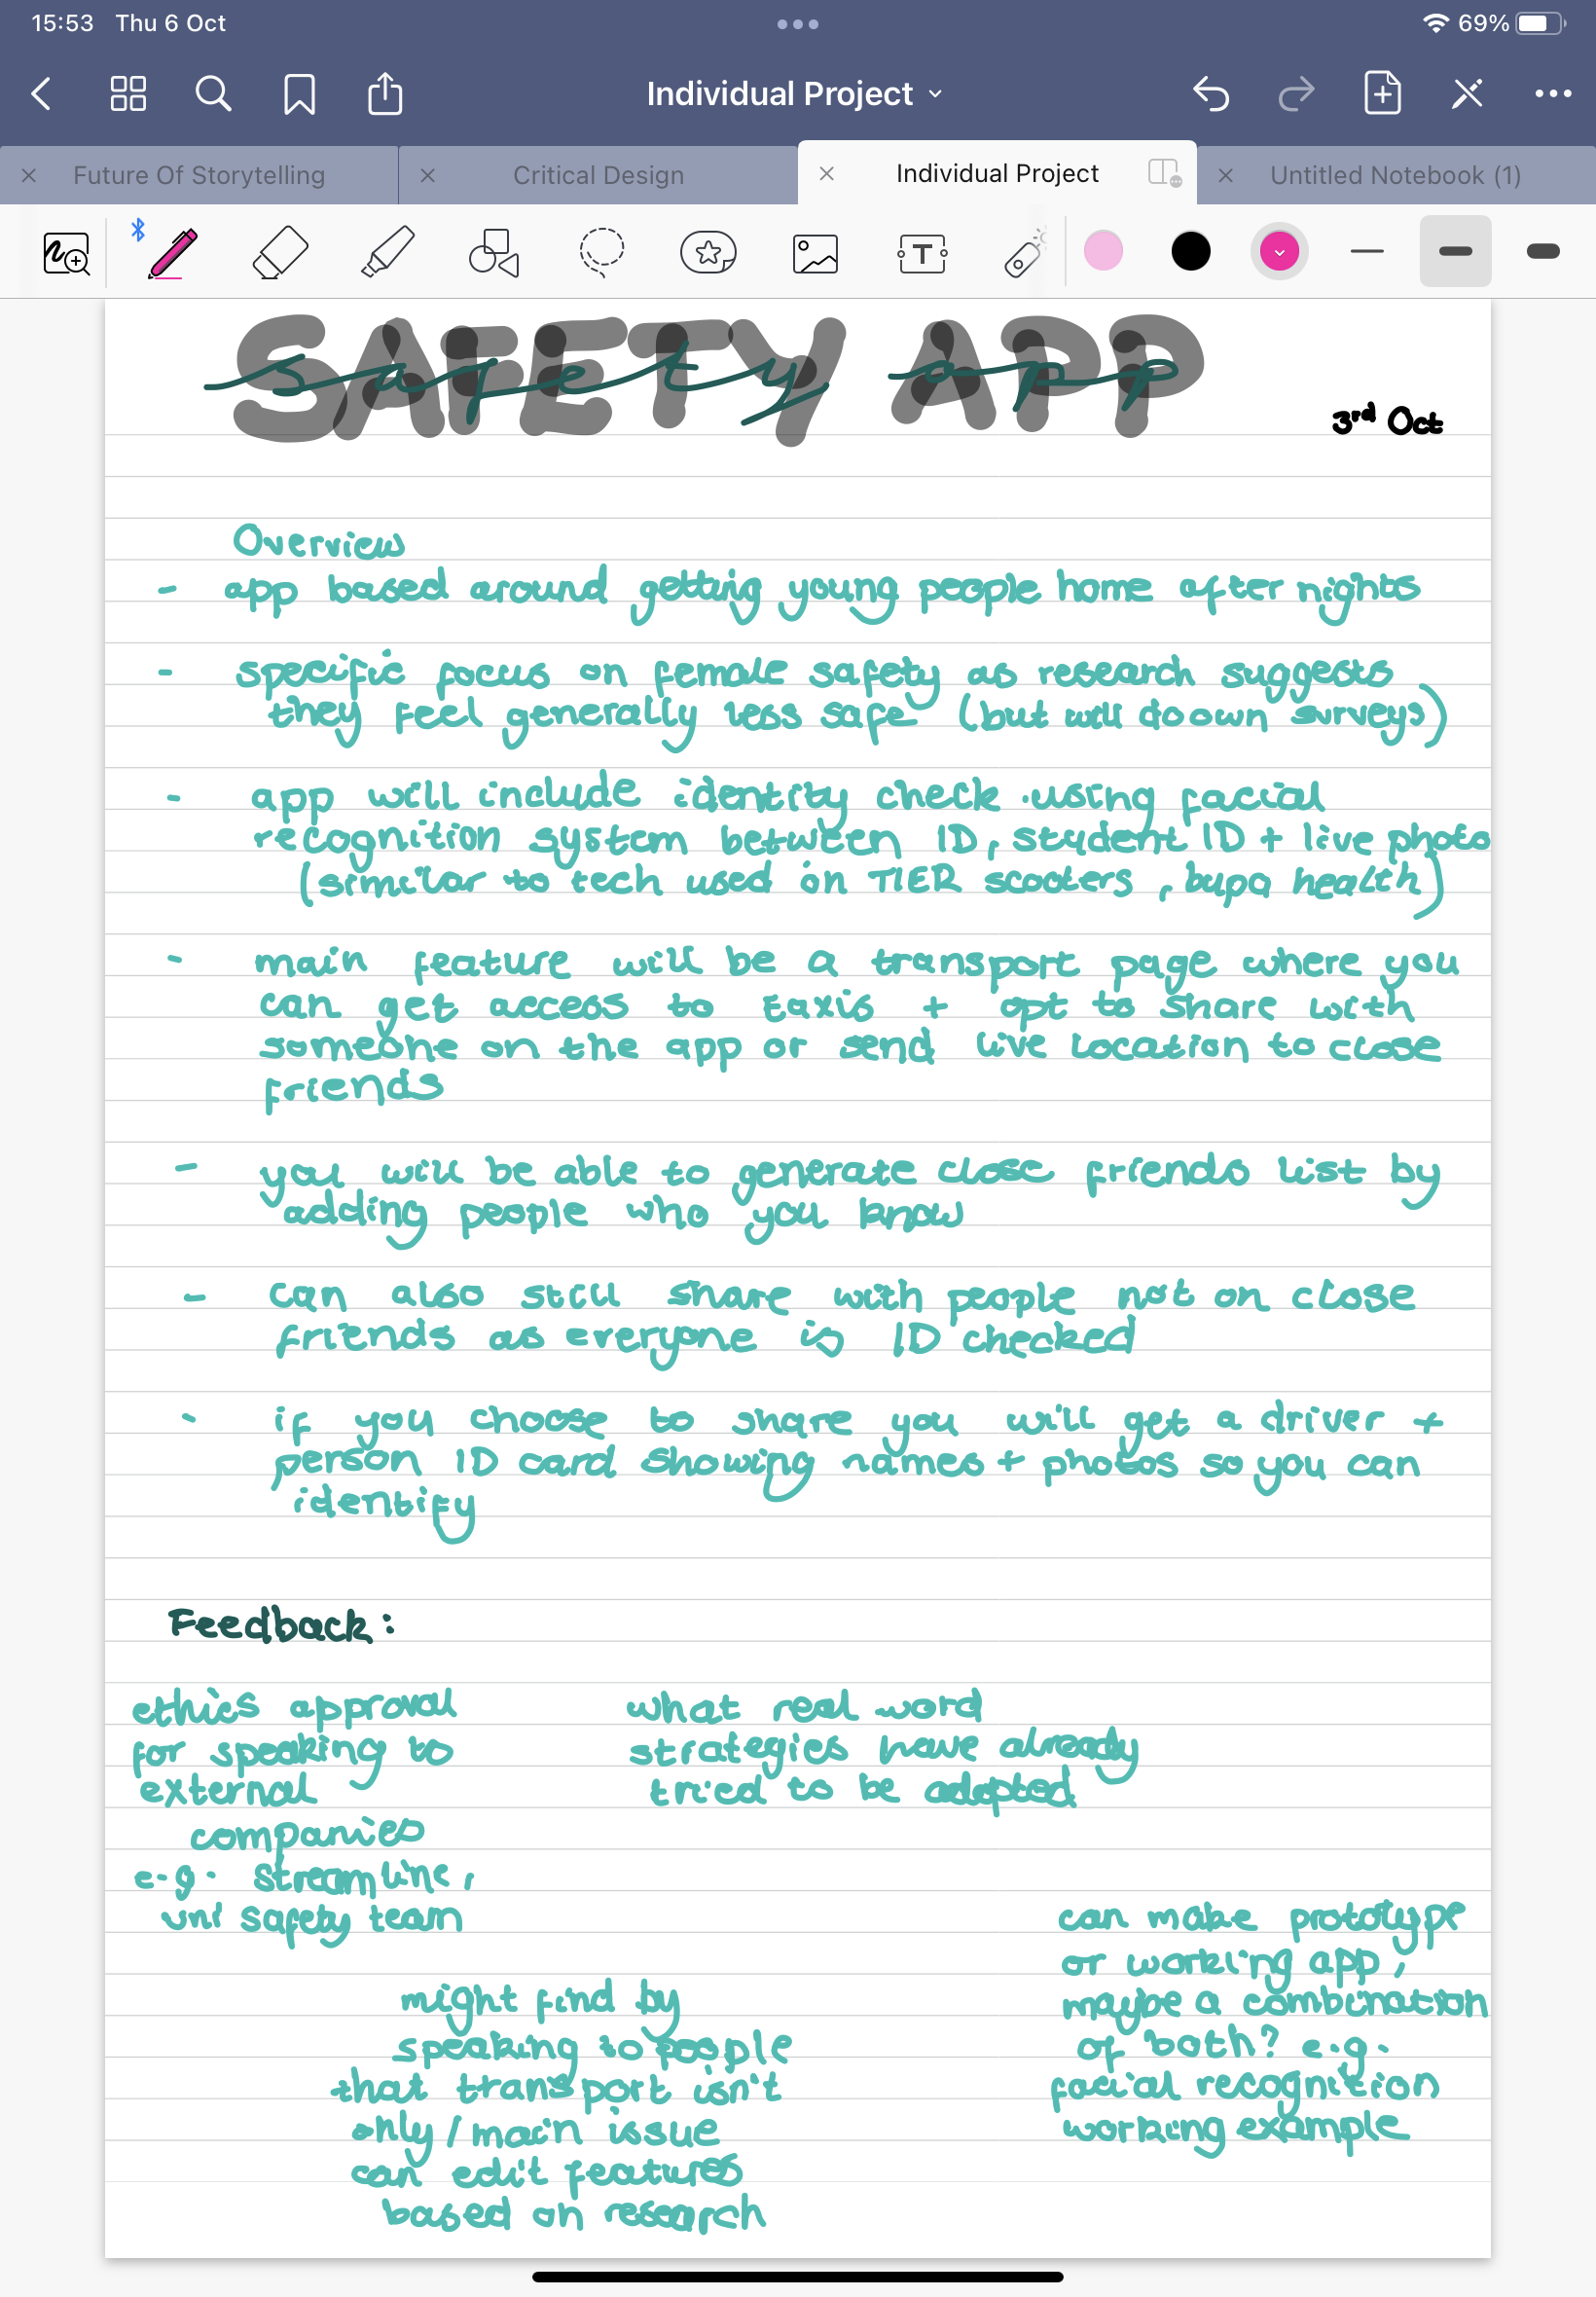 15:53 Thu 6 Oct
69%
Individual Project
Future Of Storytelling
Critical Design
Individual Project
Untitled Notebook (1)
T
SAFETY APP
safety app
3rd Oct
Overview
- app based around getting young people home after nights
- specific focus on female safety as research suggests
they feel generally less safe (but will do own surveys)
- app will include identity check using facial
recognition system between ID, student ID + live photo
(similar to tech used on TIER scooters, bupa health)
- main feature will be a transport page where you
can get access to taxis + opt to share with
someone on the app or send live location to close
friends
- you will be able to generate close friends list by
adding people who you know
- can also still share with people not on close
friends as everyone is ID checked
- if you choose to share you will get a driver +
person ID card showing names + photos so you can
identify
Feedback:
ethics approval
for speaking to
external
companies
e.g. streamline,
uni safety team
what real word
strategies have already
tried to be adopted
might find by
speaking to people
that transport isn't
only / main issue
can edit features
based on research
can make prototype
or working app,
maybe a combination
of both? e.g.
facial recognition
working example